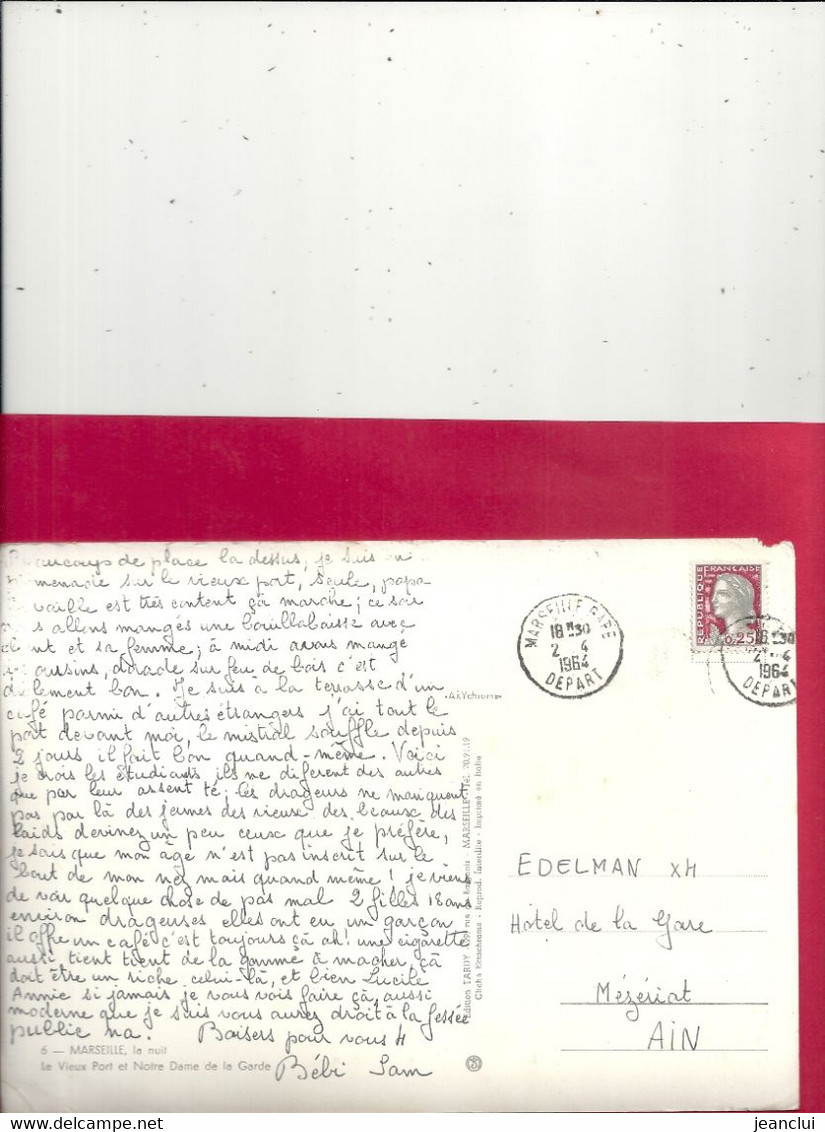 Beaucoup de place la dessus, je suis en
menade sur le vieux port, seule, papa
vaille est très content çà marche; ce soir
s allons manger une bouillabaisse avec
et sa femme; à midi avons mangé
oursins, dorade sur feu de bois c'est
lement bon. Je suis à la terrasse d'un
café parmi d'autres étrangers j'ai tout le
port devant moi, le mistral souffle depuis
2 jours il fait bon quand-même. Voici
je crois les étudiants ils ne diferent des autres
que par leur assent té; les drageurs ne manquent
pas par là des jeunes des vieux des beaux des
laids devinez un peu ceux que je préfère,
je sais que mon âge n'est pas inscrit sur le
bout de mon nez mais quand même! je viens
de voir quelque chose de pas mal 2 filles 18 ans
environ drageuses elles ont eu un garçon
il offre un café c'est toujours çà ah! une cigarette
aussi tient tient de la gomme à macher, çà
doit être un riche celui-là, et bien Lucile
Annie si jamais je vous vois faire çà, aussi
moderne que je suis vous aurez droit à la fessée
public na. Baisers pour vous 4
Bébi Sam
6 — MARSEILLE, la nuit
Le Vieux Port et Notre Dame de la Garde
Edition TARDY MARSEILLE - Tél. 20.91.19
Cliché Ektachrome - Reprod. interdite - Imprimé en Italie
REPUBLIQUE FRANÇAISE
0,25
MARSEILLE GARE
18 H 30
2 4
1964
DEPART
18 30
2 4
1964
DEPART
EDELMAN x4
Hôtel de la Gare
Mézériat
AIN
jeanclui